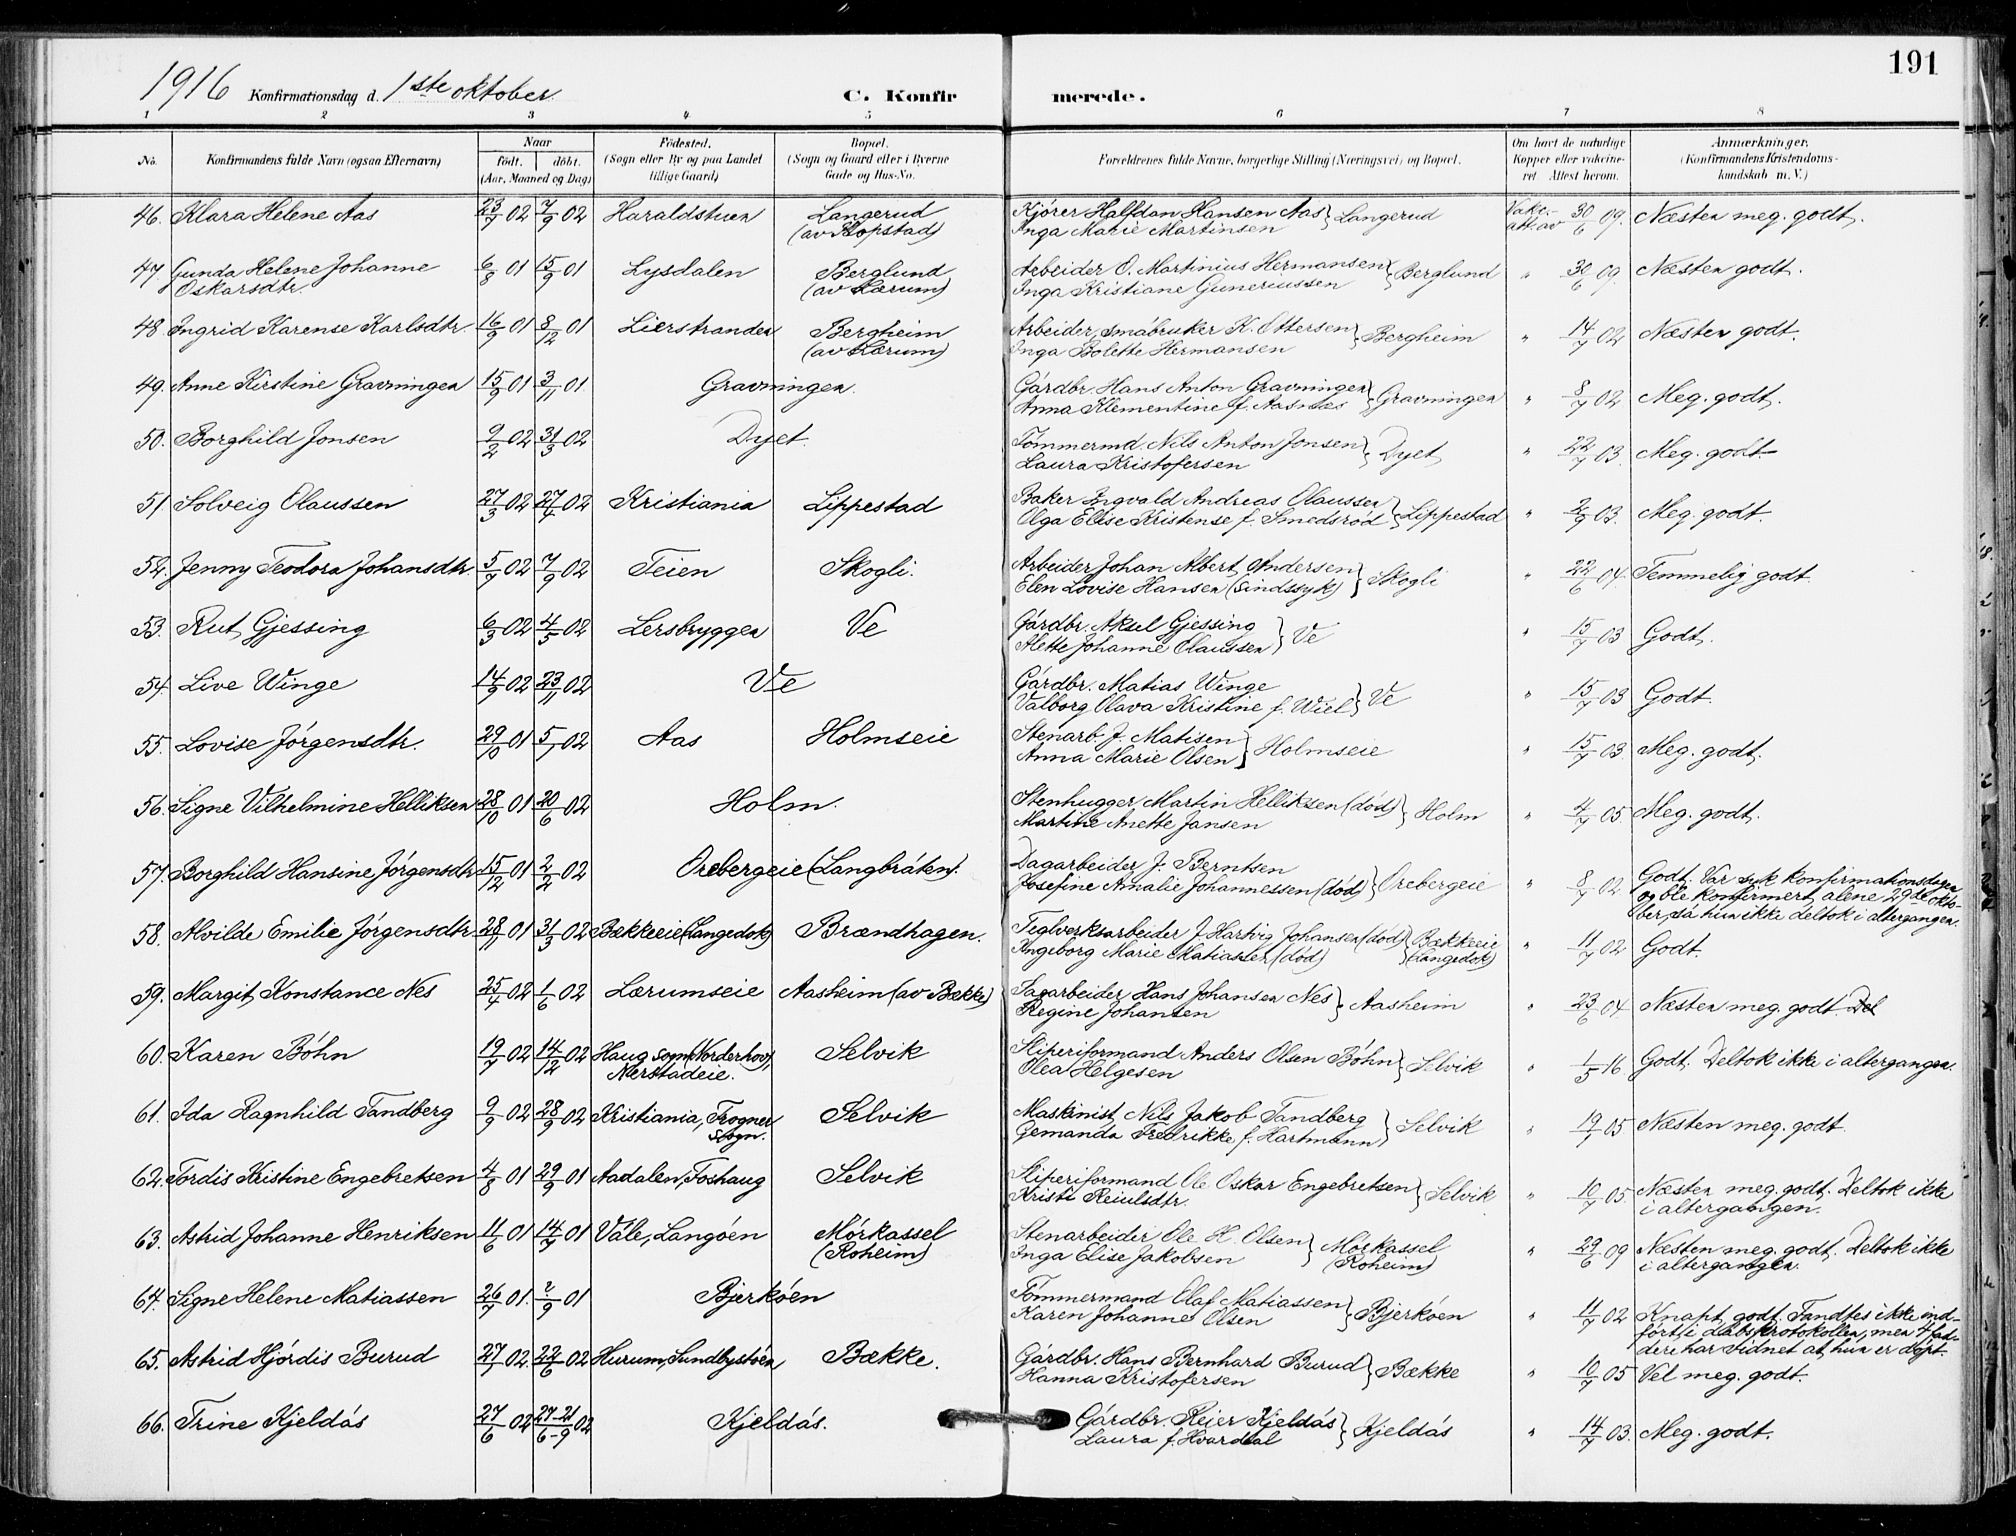 191
1916 Konfirmationsdag d. 1ste oktober. C. Konfirmerede.
1 2 3 4 5 6 7 8
No. Konfirmandens fulde Navn (ogsaa Efternavn) Naar født. døbt. (Aar, Maaned og Dag) Fødested. (Sogn eller By og paa Landet tillige Gaard) Bopæl. (Sogn og Gaard eller i Byerne Gade og Hus-No. Forældrenes fulde Navne, borgerlige Stilling (Næringsvei) og Bopæl. Om havt de naturlige Kopper eller vakcineret. Attest herom. Anmærkninger. (Konfirmandens Kristendomskundskab m. V.)
46. Klara Helene Aas 23/7 02 7/9 02 Haraldstuen Langerud (av Kopstad) Kjører Halfdan Hansen Aas Inga Marie Martinsen } Langerud Vakc.-att. av 30/6 09. Næsten meg. godt.
47. Gunda Helene Johanne Oskarsdtr. 6/8 01 15/9 01 Lysdalen Berglund (av Lærum) Arbeider O. Martinius Hermansen Inga Kristiane Gunerussen } Berglund " 30/6 09. Næsten godt.
48. Ingrid Karense Karlsdtr. 16/9 01 8/12 01 Lierstranden Bergheim (av Lærum) Arbeider, småbruker K. Ottersen Inga Bolette Hermansen } Bergheim " 14/7 02 Næsten godt.
49. Anne Kirstine Gravningen 15/9 01 3/11 01. Gravningen. Gårdbr. Hans Anton Gravningen Anna Klementine f. Aasnæs } Gravningen " 8/7 02 Meg. godt.
50. Borghild Jonsen 9/2 02 31/3 02 Dyet. Tømmermd. Nils Anton Jonsen Laura Kristofersen } Dyet " 22/7 03. Meg. godt.
51. Solveig Olaussen 27/3 02 27/4 02 Kristiania Lippestad Baker Ingvald Andreas Olaussen Olga Elise Kristense f. Smedsrød } Lippestad " 2/9 03. Meg. godt.
52. Jenny Teodora Johansdtr. 5/7 02 7/9 02 Teien Skogli. Arbeider Johan Albert Andersen Elen Lovise Hansen (sindssyk) } Skogli " 22/6 04. Temmelig godt
53. Rut Gjessing 6/3 02 4/5 02 Lersbryggen Ve Gårdbr. Aksel Gjessing Mette Johanne Olaussen } Ve " 15/7 03 Godt.
54. Live Winge 14/9 02 23/11 02 Ve Gårdbr. Matias Winge Valborg Olava Kristine f. Wiel } Ve " 15/7 03 Godt.
55. Lovise Jørgensdtr. 29/10 01 5/1 02 Aas Holmseie Stenarb. J. Matisen Anna Marie Olsen } Holmseie " 15/7 03 Meg. godt.
56. Signe Vilhelmine Helliksen 28/10 01 20/6 02 Holm. Stenhugger Martin Helliksen (død) Martine Anette Jansen } Holm " 4/7 05 Meg. godt.
57. Borghild Hansine Jørgensdtr. 15/12 01 2/2 02 Orebergeie (Langbråten). Dagarbeider J. Berntsen Josefine Amalie Johannessen (død) } Orebergeie " 8/7 02 Godt. Var syk konfirmationsdagen og ble konfirmert alene 29de oktober, så hun ikke deltok i altergangen.
58. Alvilde Emilie Jørgensdtr. 28/11 01 31/3 02 Bækkeeie (Langedok) Brændhagen. Teglverksarbeider J. Hartvig Johansen (død) Ingeborg Marie Matiassen (død) } Bækkeeie (Langedok) " 11/7 02 Godt.
59. Margit Konstance Nes 25/4 02 1/6 02 Lærumseie Aasheim (av Bække) Sagarbeider Hans Johansen Nes Regine Johansen } Aasheim " 23/6 04. Næsten meg. godt Del
60. Karen Bøhn 19/7 02 14/12 02 Haug sogn (Norderhov), Nerstadeie. Selvik Sliperiformand Anders Olsen Bøhn Olea Helgesen } Selvik " 1/5 16 Godt. Deltok ikke i altergangen.
61. Ida Ragnhild Tandberg 9/9 02 28/9 02 Kristiania, Frogner sogn. Selvik Maskinist Nils Jakob Tandberg Gemanda Fredrikke f. Hartmann } Selvik " 19/7 05 Næsten meg. godt
62. Tordis Kristine Engebretsen 4/8 01 29/9 01 Aadalen, Foshaug Selvik Sliperiformand Ole Oskar Engebretsen Kristi Reiulsdtr. } Selvik " 10/7 05 Næsten meg. godt. Deltok ikke i altergangen.
63. Astrid Johanne Henriksen 11/6 01 14/7 01 Våle, Langøen Mørkassel (Roheim) Stenarbeider Ole H. Olsen Inga Elise Jakobsen } Mørkassel (Roheim) " 29/6 09 Næsten meg. godt. Deltok ikke i altergangen.
64. Signe Helene Matiassen 26/7 01. ?/9 01 Bjerkøen Tømmermand Olaf Matiassen Karen Johanne Olsen } Bjerkøen " 11/7 02 Knapt godt. Fandtes ikke indført i dåbsprotokollen, men 4 faddere har vidnet at hun er døpt.
65. Astrid Hjørdis Burud 27/7 02. 22/6 02 Hurum, Sundbystøen Bække. Gårdbr. Hans Bernhard Burud Hanna Kristofersen } Bække " 10/7 05 Vel meg. godt.
66. Trine Kjeldås 27/6 02 27-21/6-9 02 Kjeldås. Gårdbr. Reier Kjeldås Laura f. Hvardal } Kjeldås " 14/7 03. Meg. godt.